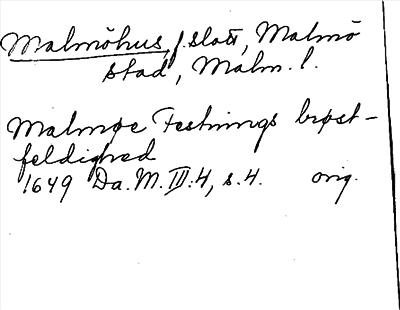 Malmöhus, f. slott, Malmö
stad, Malm. l.
Malmøe Festnings brøst-
feldighed
1649 Da. M. III:4, s. 4. orig.